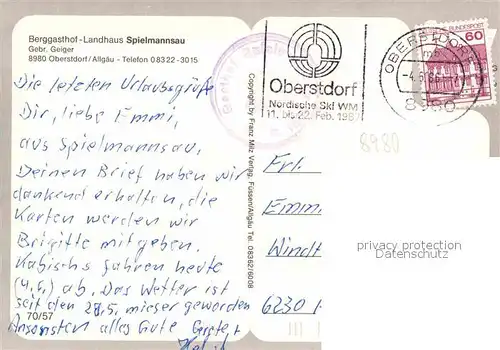 Berggasthof - Landhaus Spielmannsau
Gebr. Geiger
8980 Oberstdorf/Allgäu - Telefon 08322 - 3015
Die letzten Urlaubsgrüße
Dir, liebe Emmi,
aus Spielmannsau.
Deinen Brief haben wir
dankend erhalten, die
Karten werden wir
Brigitte mitgeben.
Kabischs fahren heute
(4.6.) ab. Das Wetter ist
seit den 28.5. mieser geworden
Ansonsten alles Gute
70/57
Copyright by Franz Milz Verlag, Füssen/Allgäu Tel. 08362/6908
Oberstdorf
Nordische Ski WM
11. bis 22. Feb. 1987
OBERSTDORF
8980
BUNDESPOST
60
8980
Frl.
Emm
Windt
6230
privacy protection
Datenschutz